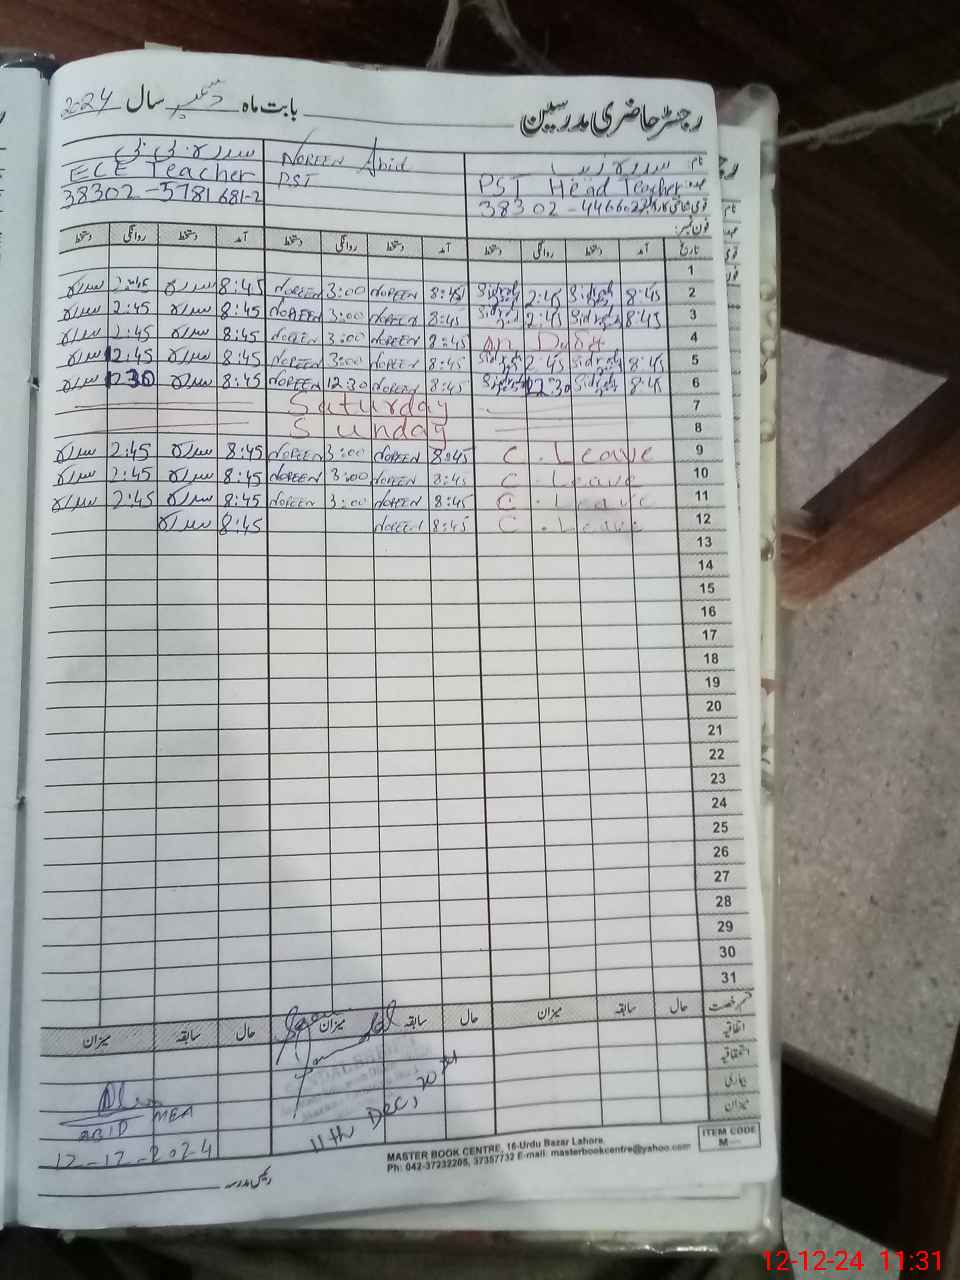 رجسٹر حاضری مدرسین بابت ماہ دسمبر سال 2-24
نام سدرہ زیب NOREEN Abid سدرہ بی بی
عہدہ PST Head Teacher PST ECE Teacher
قومی شناختی کارڈ 38302-5781681-2
فون نمبر:
تاریخ آمد دستخط روانگی دستخط آمد دستخط روانگی دستخط آمد دستخط روانگی دستخط
1
2 8:45 Sidrah 2:45 Sidrah 8:45 NOREEN 3:00 NOREEN 8:45 سدرہ 2:45 سدرہ
3 8:45 Sidrah 2:45 Sidrah 8:45 NOREEN 3:00 NOREEN 8:45 سدرہ 2:45 سدرہ
4 on Duty 8:45 NOREEN 3:00 NOREEN 8:45 سدرہ 2:45 سدرہ
5 8:45 Sidrah 2:45 Sidrah 8:45 NOREEN 3:00 NOREEN 8:45 سدرہ 2:45 سدرہ
6 8:45 Sidrah 12:30 Sidrah 8:45 NOREEN 12:30 NOREEN 8:45 سدرہ 12:30 سدرہ
7 Saturday
8 Sunday
9 C. Leave 8:45 NOREEN 3:00 NOREEN 8:45 سدرہ 2:45 سدرہ
10 C. Leave 8:45 NOREEN 3:00 NOREEN 8:45 سدرہ 2:45 سدرہ
11 C. Leave 8:45 NOREEN 3:00 NOREEN 8:45 سدرہ 2:45 سدرہ
12 C. Leave 8:45 NOREEN 8:45 سدرہ
13
14
15
16
17
18
19
20
21
22
23
24
25
26
27
28
29
30
31
قسم رخصت حال سابقہ میزان حال سابقہ میزان حال سابقہ میزان
اتفاقیہ
استحقاقیہ
بیماری
میزان
ABID MEA
12-12-2024
11th Dec,
رئیس مدرسہ
MASTER BOOK CENTRE, 16-Urdu Bazar Lahore.
Ph: 042-37232205, 37357732 E-mail: masterbookcentre@yahoo.com
ITEM CODE
M—
12-12-24 11:31